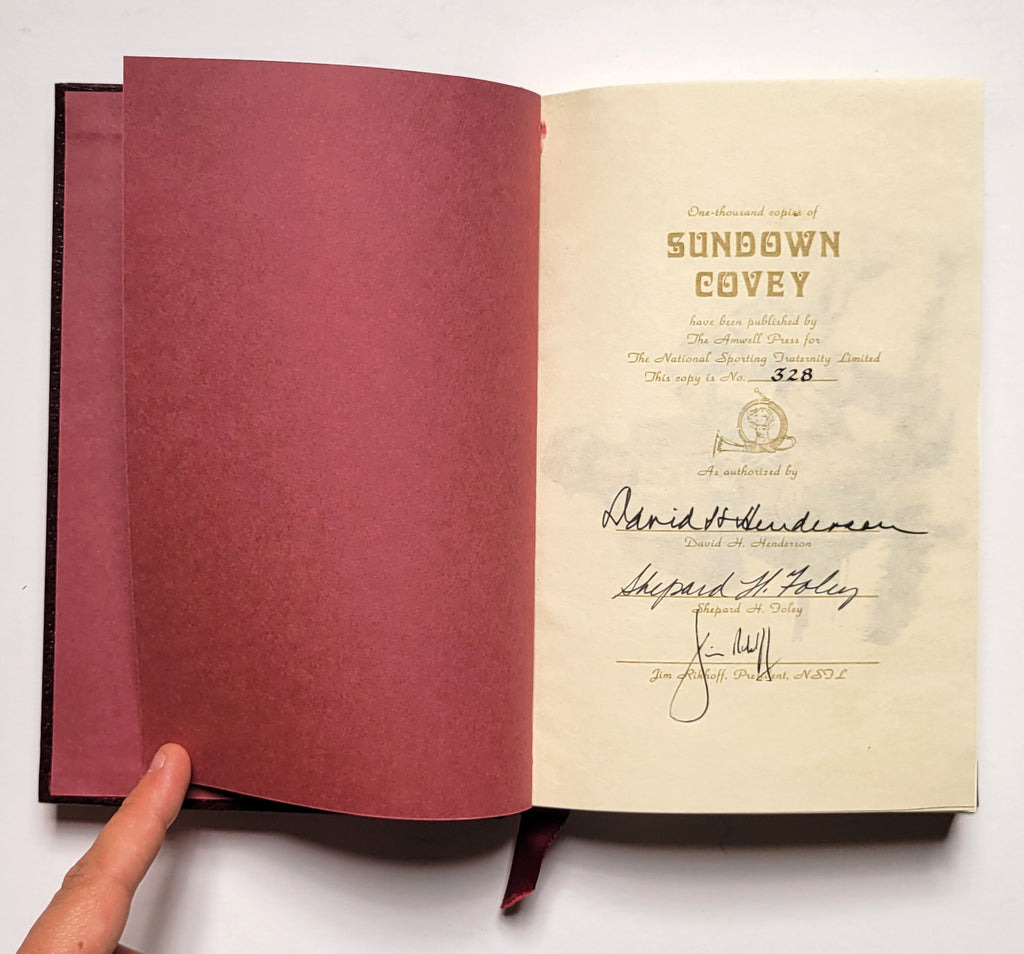 One-thousand copies of
SUNDOWN
COVEY
have been published by
The Amwell Press for
The National Sporting Fraternity Limited
This copy is No. 328
As authorized by
David H Henderson
David H. Henderson
Shepard H. Foley
Shepard H. Foley
Jim Rikhoff
Jim Rikhoff, President, NSFL